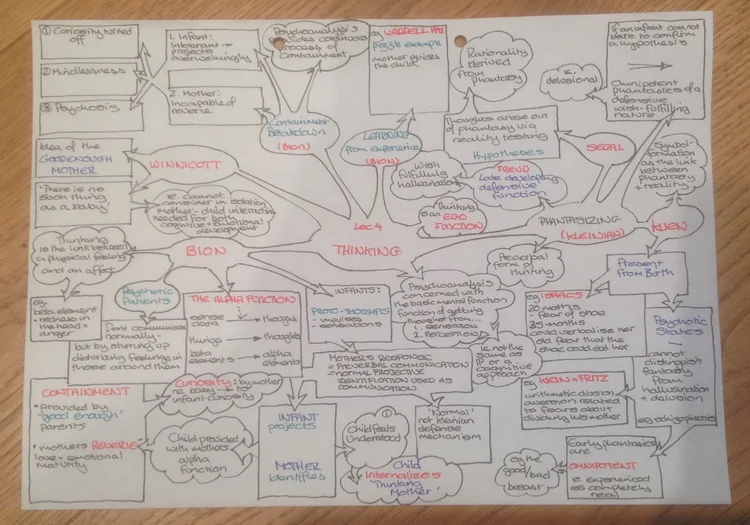 ① Curiosity turned
off
② Mindlessness
③ Psychosis
1. Infant:
Intolerant →
projects
overwhelmingly
2. Mother:
Incapable of
reverie
Psychoanalysis
provides continuous
process of
containment
Containment
Breakdown
(BION)
eg WADDELL
Puzzle example
mother guides
the child
LEARNING
from experience
(BION)
Rationality
derived
from phantasy
ie.
delusional
If an infant cannot
bare to confirm
a hypothesis
Omnipotent
phantasies of a
defensive
wish-fulfilling
nature
Thoughts arise out
of phantasy via
reality testing
Hypotheses
SEGAL
Symbol-
formation
as the link
between
phantasy
+ reality
Idea of the
GOODENOUGH
MOTHER
WINNICOTT
'There is no
such thing
as a baby'
ie. Cannot
consider in isolation
mother-child interaction
needed for both
cognitive + emotional
development
Wish
fulfilling
hallucination
FREUD
Late developing
defensive
function
Thinking
is an EGO
FUNCTION
PHANTASIZING
(KLEINIAN)
KLIEN
Lec 4
THINKING
BION
Thinking
is the link between
a physical feeling
and an affect
eg.
beta element
= redness in
the head =
anger
Psychotic
Patients
Dont communicate
normally -
but by stirring up
disturbing feelings in
those around them
THE ALPHA FUNCTION
sense
data → thought
things → thoughts
beta
elements → alpha
elements
INFANTS:
PROTO-THOUGHTS
- impulses
- sensations
Psychoanalysis
concerned with
the basic mental function
function of getting
thought from...
1. SENSATION
2. PERCEPTION
Preverbal
form of
thinking
Present
from Birth
eg ISAACS
20 months
- fear of shoe
35 months
could verbalise her
old fear that the
shoe could eat her
Psychotic
States:
cannot
distinguish
fantasy
from
hallucination
+ delusion
eg schizophrenia
ie. not the
same as
IP or a
cognitive
approach
MOTHERS RESPONSE
= PREVERBAL COMMUNICATION
= NORMAL PROJECTIVE
IDENTIFICATION USED AS
COMMUNICATION
KLEIN + FRITZ
arithmatic division
aversion related
to fears about
dividing his mother
CONTAINMENT
• provided by
'good enough'
parents
• mothers REVERIE
love + emotional
maturity
Curiosity: by mother
re: baby →
infant curiosity
Child provided
with mothers
alpha
function
INFANT
projects
MOTHER
identifies
①
Child feels
understood
②
Child
Internalizes
'Thinking
Mother'
'Normal'
not Kleinian
defense
mechanism
eg the
good/bad
breast
Early phantasies
are
OMNIPOTENT
ie experienced
as completely
real